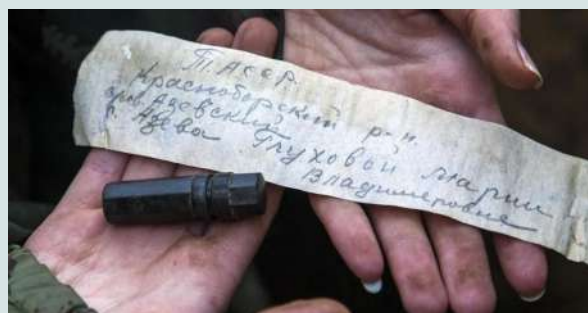 Т.АССР.
Красноборский р-н.
Азевский
д. Азево Глуховой Марии
Владимировне